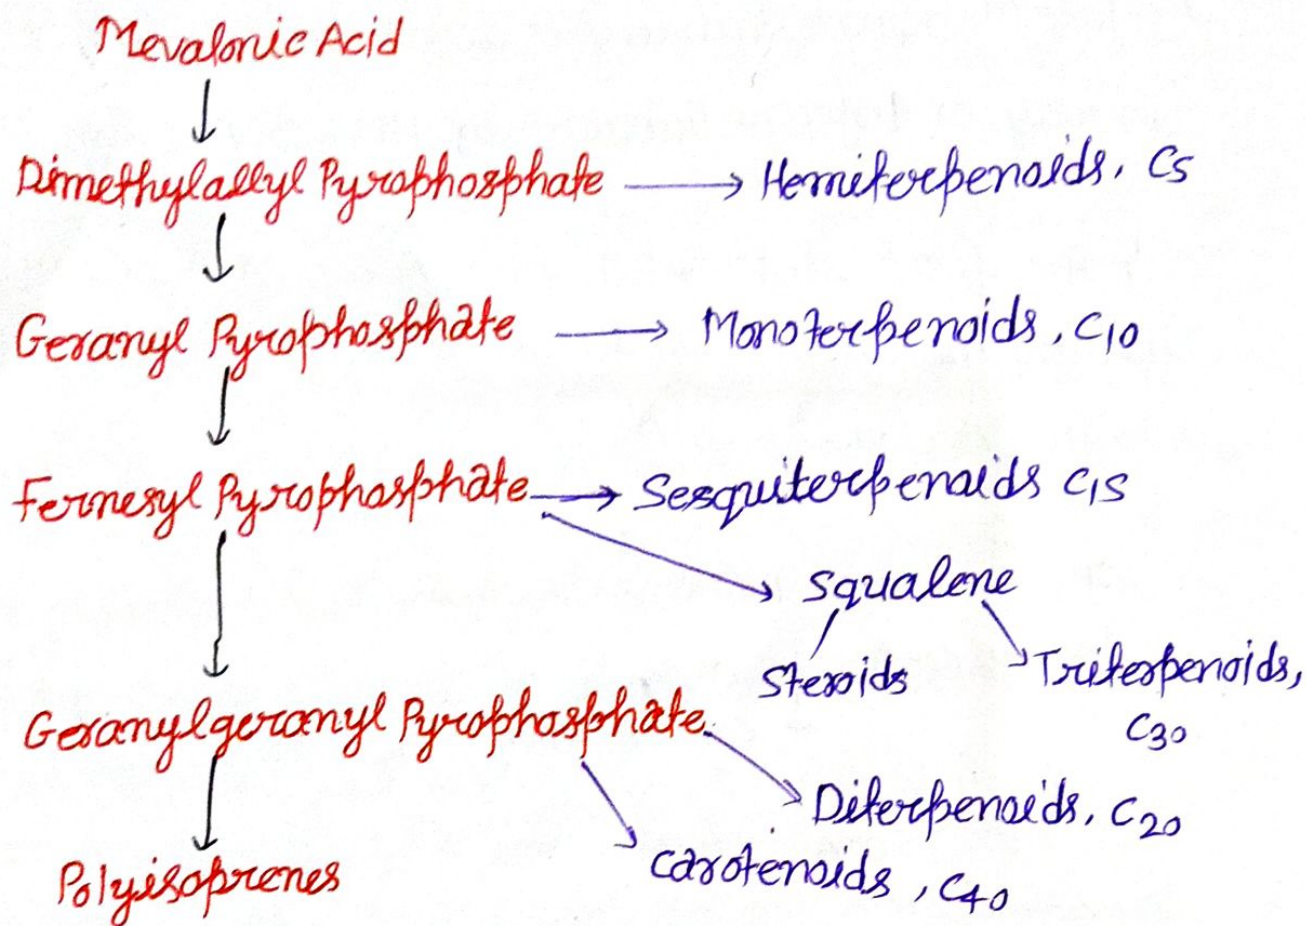 Mevalonic Acid
Dimethylallyl Pyrophosphate → Hemiterpenoids, C5
Geranyl Pyrophosphate → Monoterpenoids, C10
Fernesyl Pyrophosphate → Sesquiterpenoids C15
Squalene
Steroids
Triterpenoids,
C30
Geranylgeranyl Pyrophosphate
Diterpenoids, C20
Carotenoids, C40
Polyisoprenes